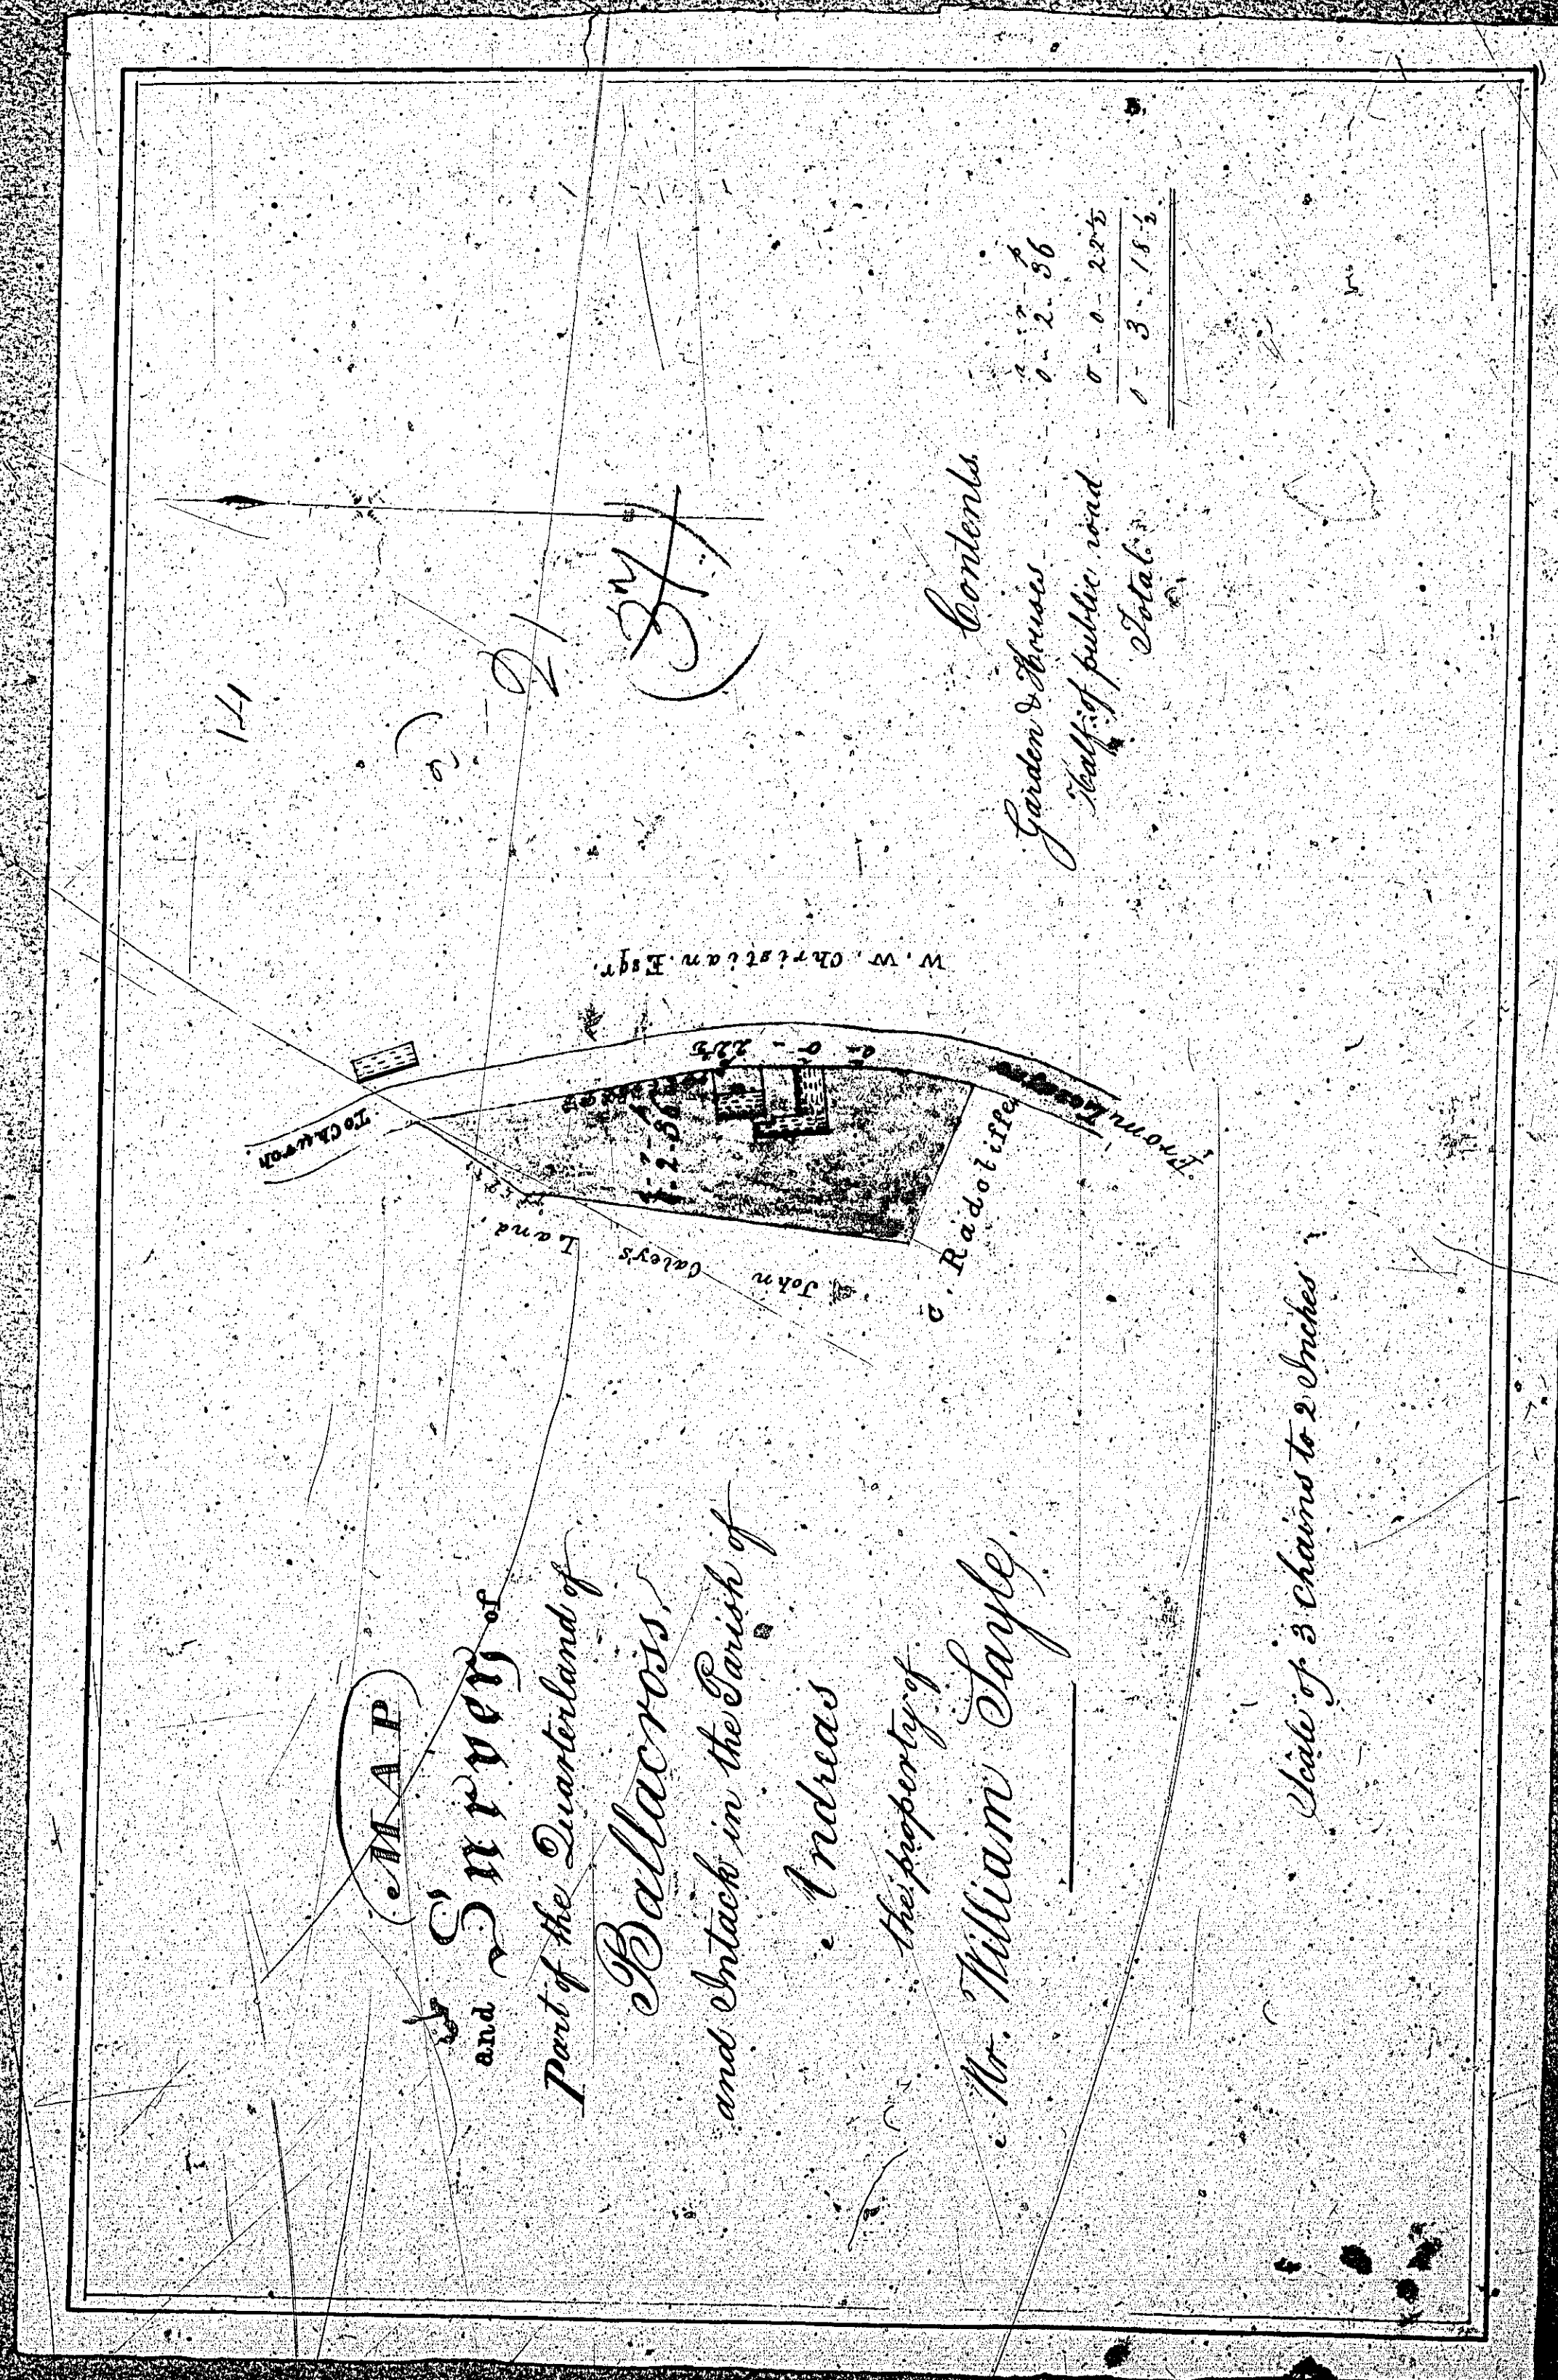 MAP
and Survey of
Part of the Quarterland of
Ballacross,
and Intack in the Parish of
Andreas
the property of
Mr. William Sayle.
Scale of 3 Chains to 2 Inches
To Church.
W. W. Christian. Esqr.
John Caley's Land.
C. Radcliffe
From
0-2-36
22½
Contents.
a r p
Garden & Houses 0-2-36
Half of public road 0-0-22½
Total. 0-3-18½
171
21